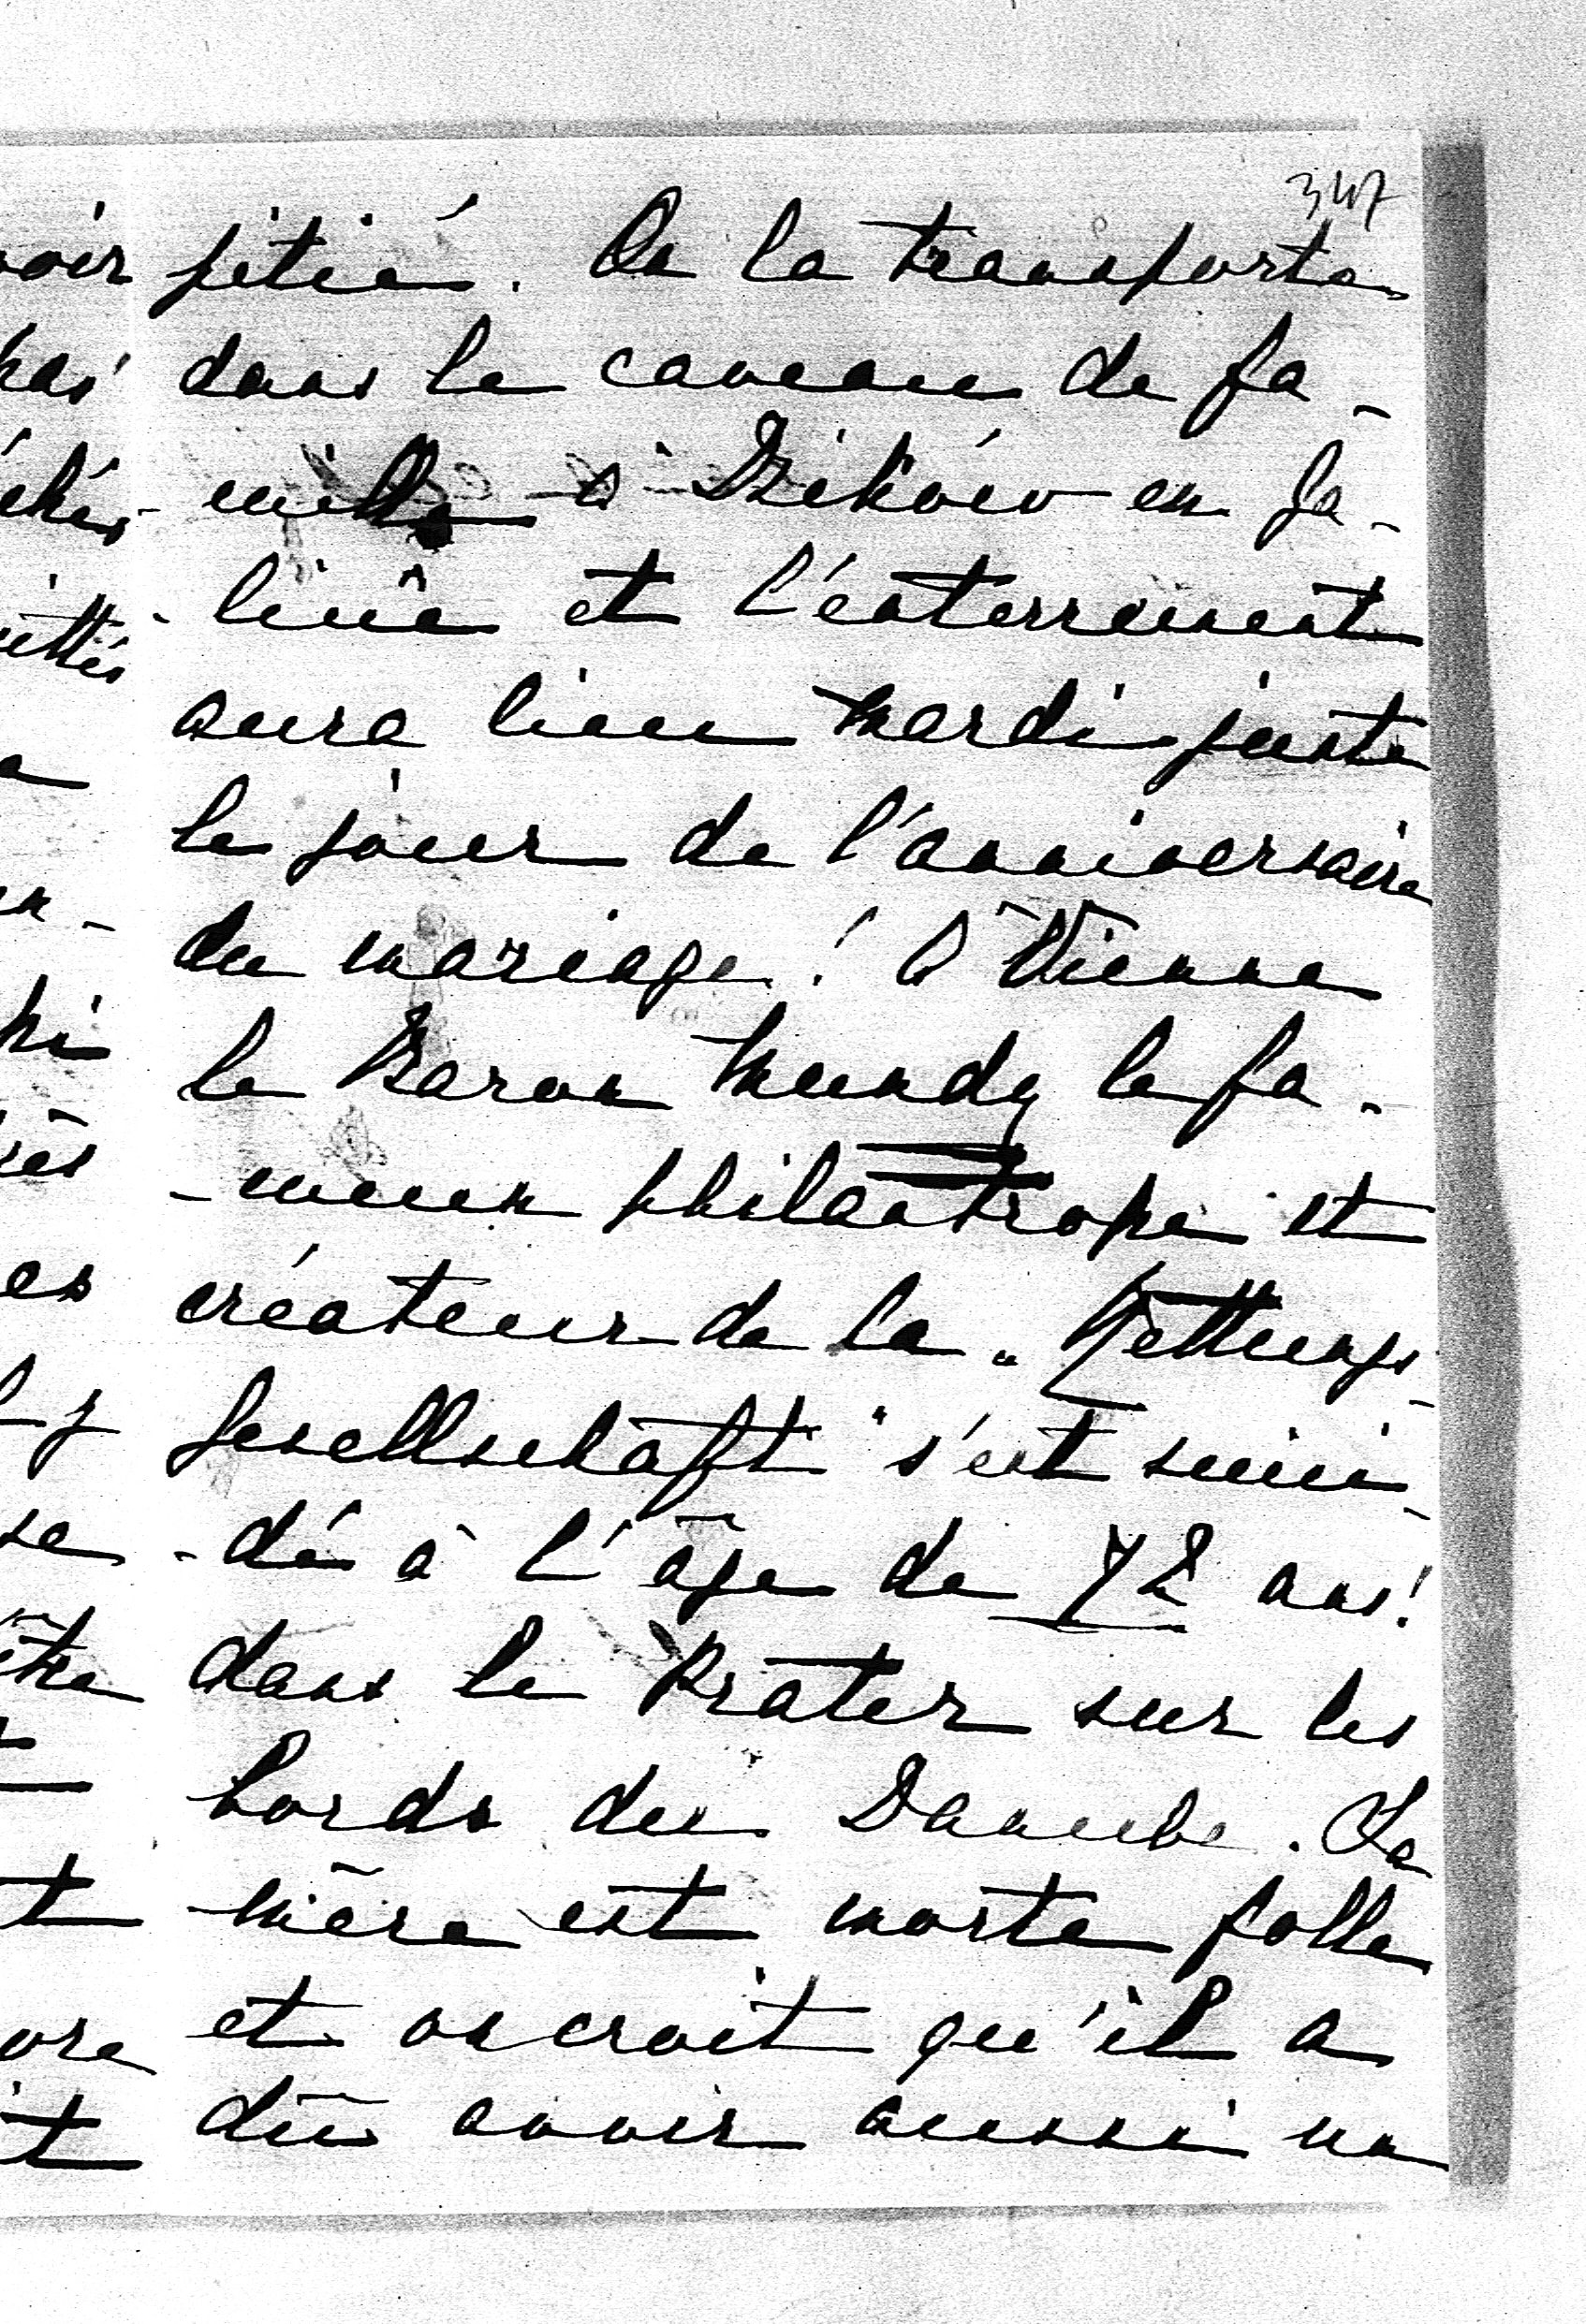 347
pitié. On la transporta
dans le caveau de fa-
mille à Dzików en Ga-
licie et l'enterrement
aura lieu Mardi juste
le jour de l'anniversaire
du mariage! à Vienne
le Baron Mundy le fa-
-meux philantrope et
créateur de la „Rettungs-
Gesellschaft" s'est suici-
-dé à l'âge de 72 ans!
dans le Prater sur les
bords du Danube. Sa
mère est morte folle
et on croit qu'il a
dû avoir aussi un